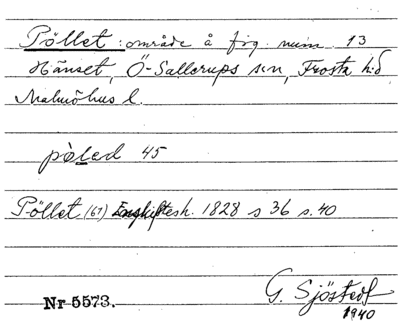 Pöllet: område å fig. num. 13
Hänset, Ö-Sallerups s:n, Frosta h:d
Malmöhus l.
pøled 45
Pöllet (67) Enskiftesh. 1828 s 36 s. 40
G. Sjöstedt
1940
Nr 5573.